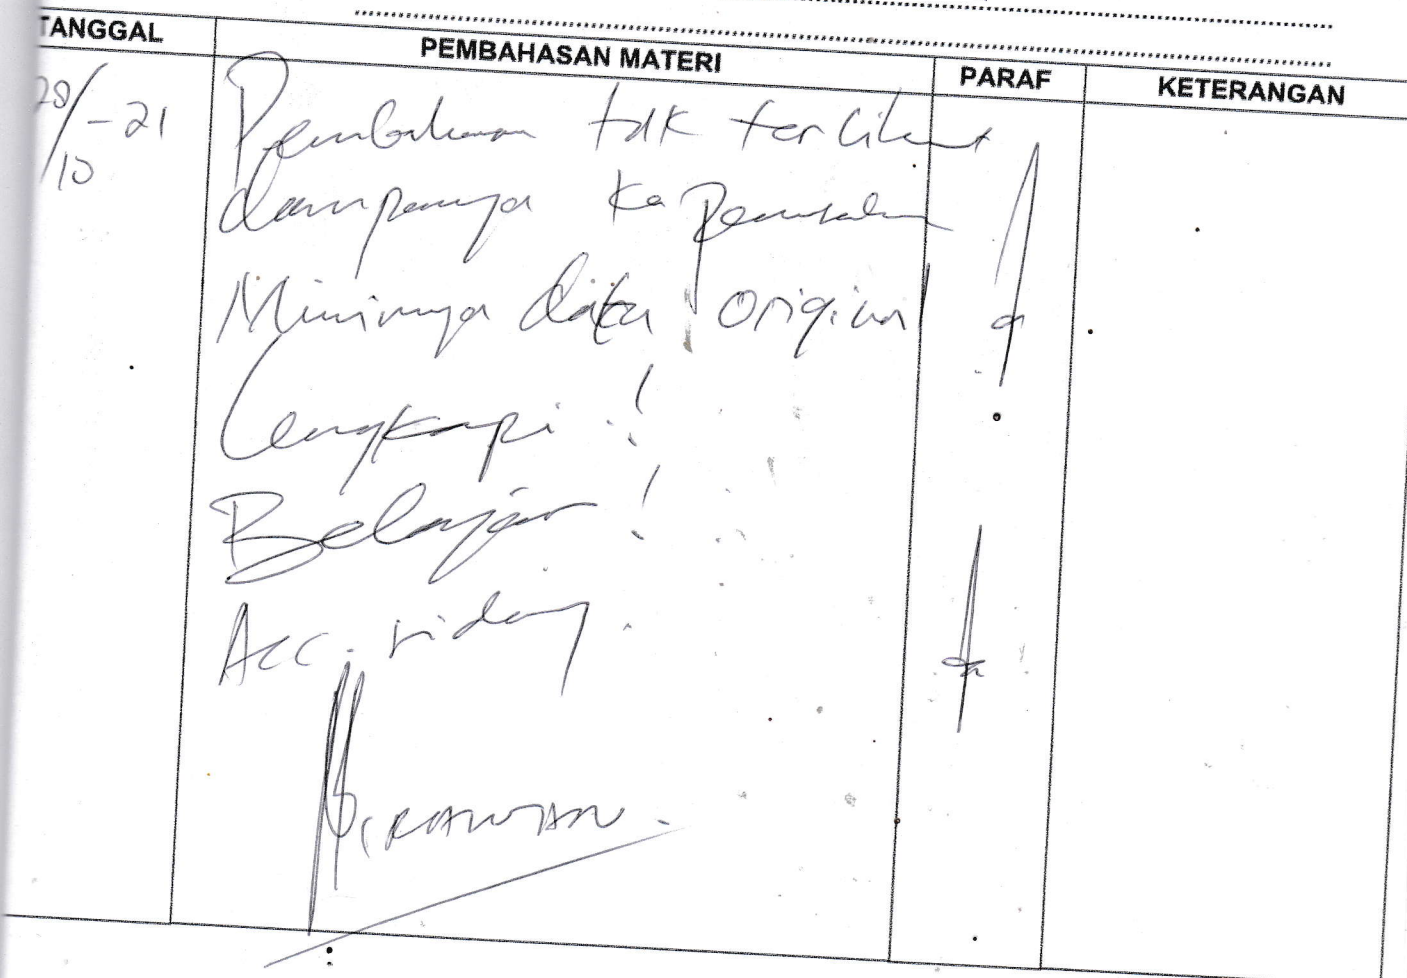 TANGGAL PEMBAHASAN MATERI PARAF KETERANGAN
28/10-21 Pembahasan tdk terlihat
dampanya ke perusahan
Minimnya data original
Lengkapi !
Belajar !
Acc. sidang.